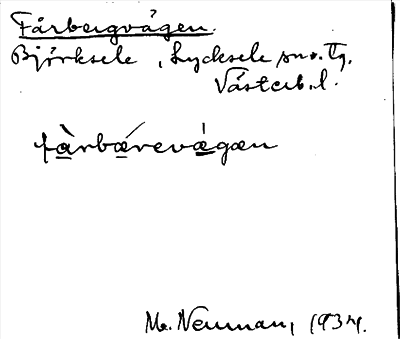 Fårbergvägen.
Björksele, Lycksele sn o. Tg.
Västerb. l.
fàrbærevægæn
M. Neuman, 1934.